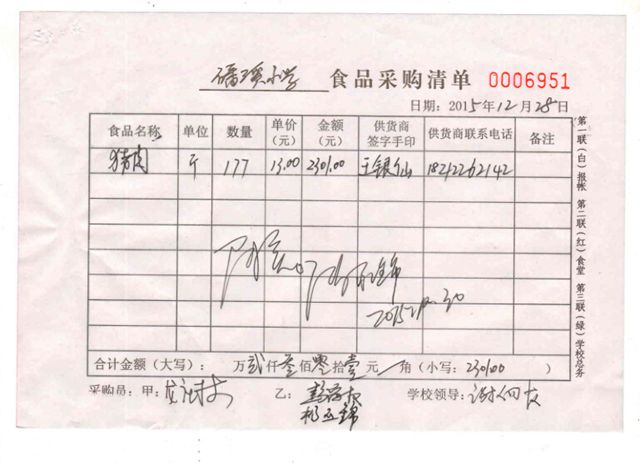 磻溪小学 食品采购清单 0006951
日期：2015年12月28日
食品名称 单位 数量 单价（元） 金额（元） 供货商签字手印 供货商联系电话 备注
猪肉 斤 177 13.00 2301.00 王银仙 18212262142
2015.12.30
合计金额（大写）： 万贰仟叁佰零拾壹元 角（小写：2301.00）
采购员：甲： 乙： 学校领导：
第一联（白）报帐 第二联（红）食堂 第三联（绿）学校总务